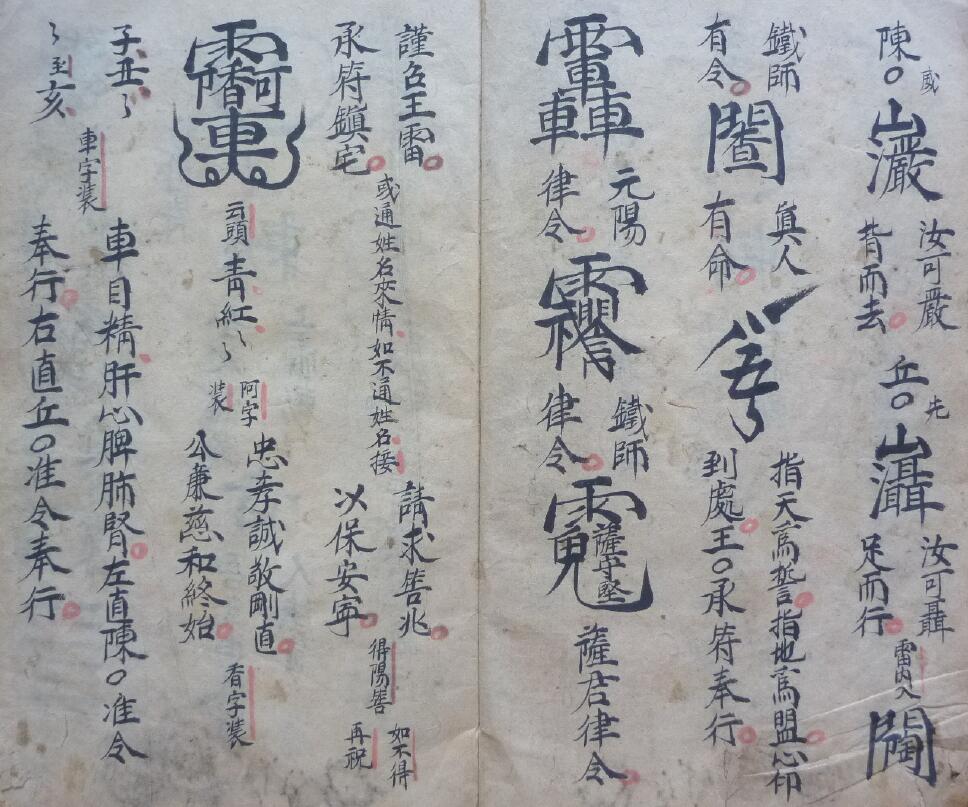 陳○
威
汝可嚴
背而去
丘○
先
汝可聶
足而行
雷内入
鐵師
有令
真人
有命
指天為誓指地為盟心印
到處王○承符奉行
元陽
律令
鐵師
律令
薩守堅
薩君律令
謹召王雷
承符鎮宅
或通姓名來情如不通姓名接
請求筶兆
以保安寧
得陽筶
如不得
再祝
云頭
青紅
阿字
装
忠孝誠敬剛直
公廉慈和終始
看字装
子丑
至亥
車字装
車目精肝心脾肺腎左直陳○准令
奉行右直丘○准令奉行